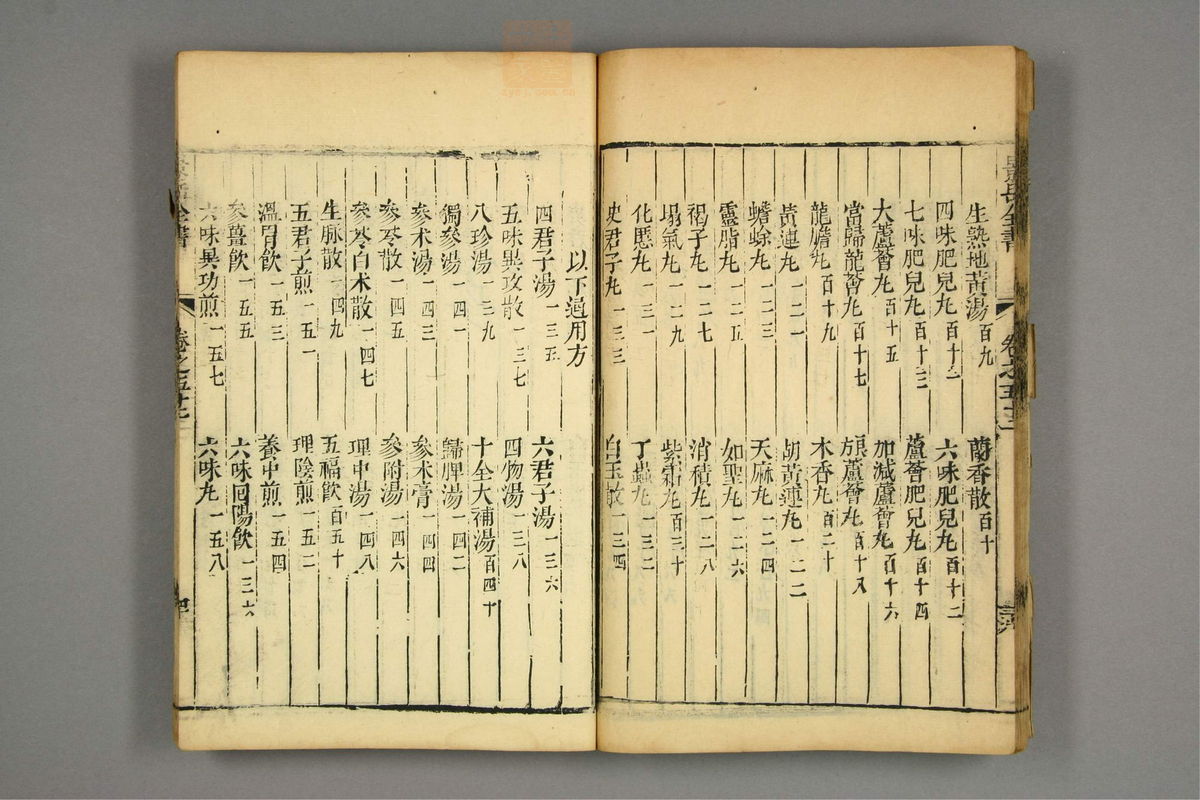 生熟地黃湯 百九 蘭香散 百十
四味肥兒丸 百十一 六味肥兒丸 百十二
七味肥兒丸 百十三 蘆薈肥兒丸 百十四
大蘆薈丸 百十五 加減蘆薈丸 百十六
當歸龍薈丸 百十七 蘆薈丸 百十八
龍膽丸 百十九 木香丸 百二十
黃連丸 一二一 胡黃連丸 一二二
蟾蜍丸 一二三 天麻丸 一二四
靈脂丸 一二五 如聖丸 一二六
褐子丸 一二七 消積丸 一二八
塌氣丸 一二九 紫霜丸 百三十
化䘌丸 一三一 丁蟲丸 一三二
史君子丸 一三三 白玉散 一三四
以下通用方
四君子湯 一三五 六君子湯 一三六
五味異攻散 一三七 四物湯 一三八
八珍湯 一三九 十全大補湯 百四十
獨參湯 一四一 歸脾湯 一四二
參朮湯 一四三 參朮膏 一四四
參苓散 一四五 參附湯 一四六
參苓白朮散 一四七 理中湯 一四八
生脉散 一四九 五福飲 百五十
五君子煎 一五一 理陰煎 一五二
溫胃飲 一五三 養中煎 一五四
參薑飲 一五五 六味回陽飲 一三六
六味異功煎 一五七 六味丸 一五八
全書
卷之五十七